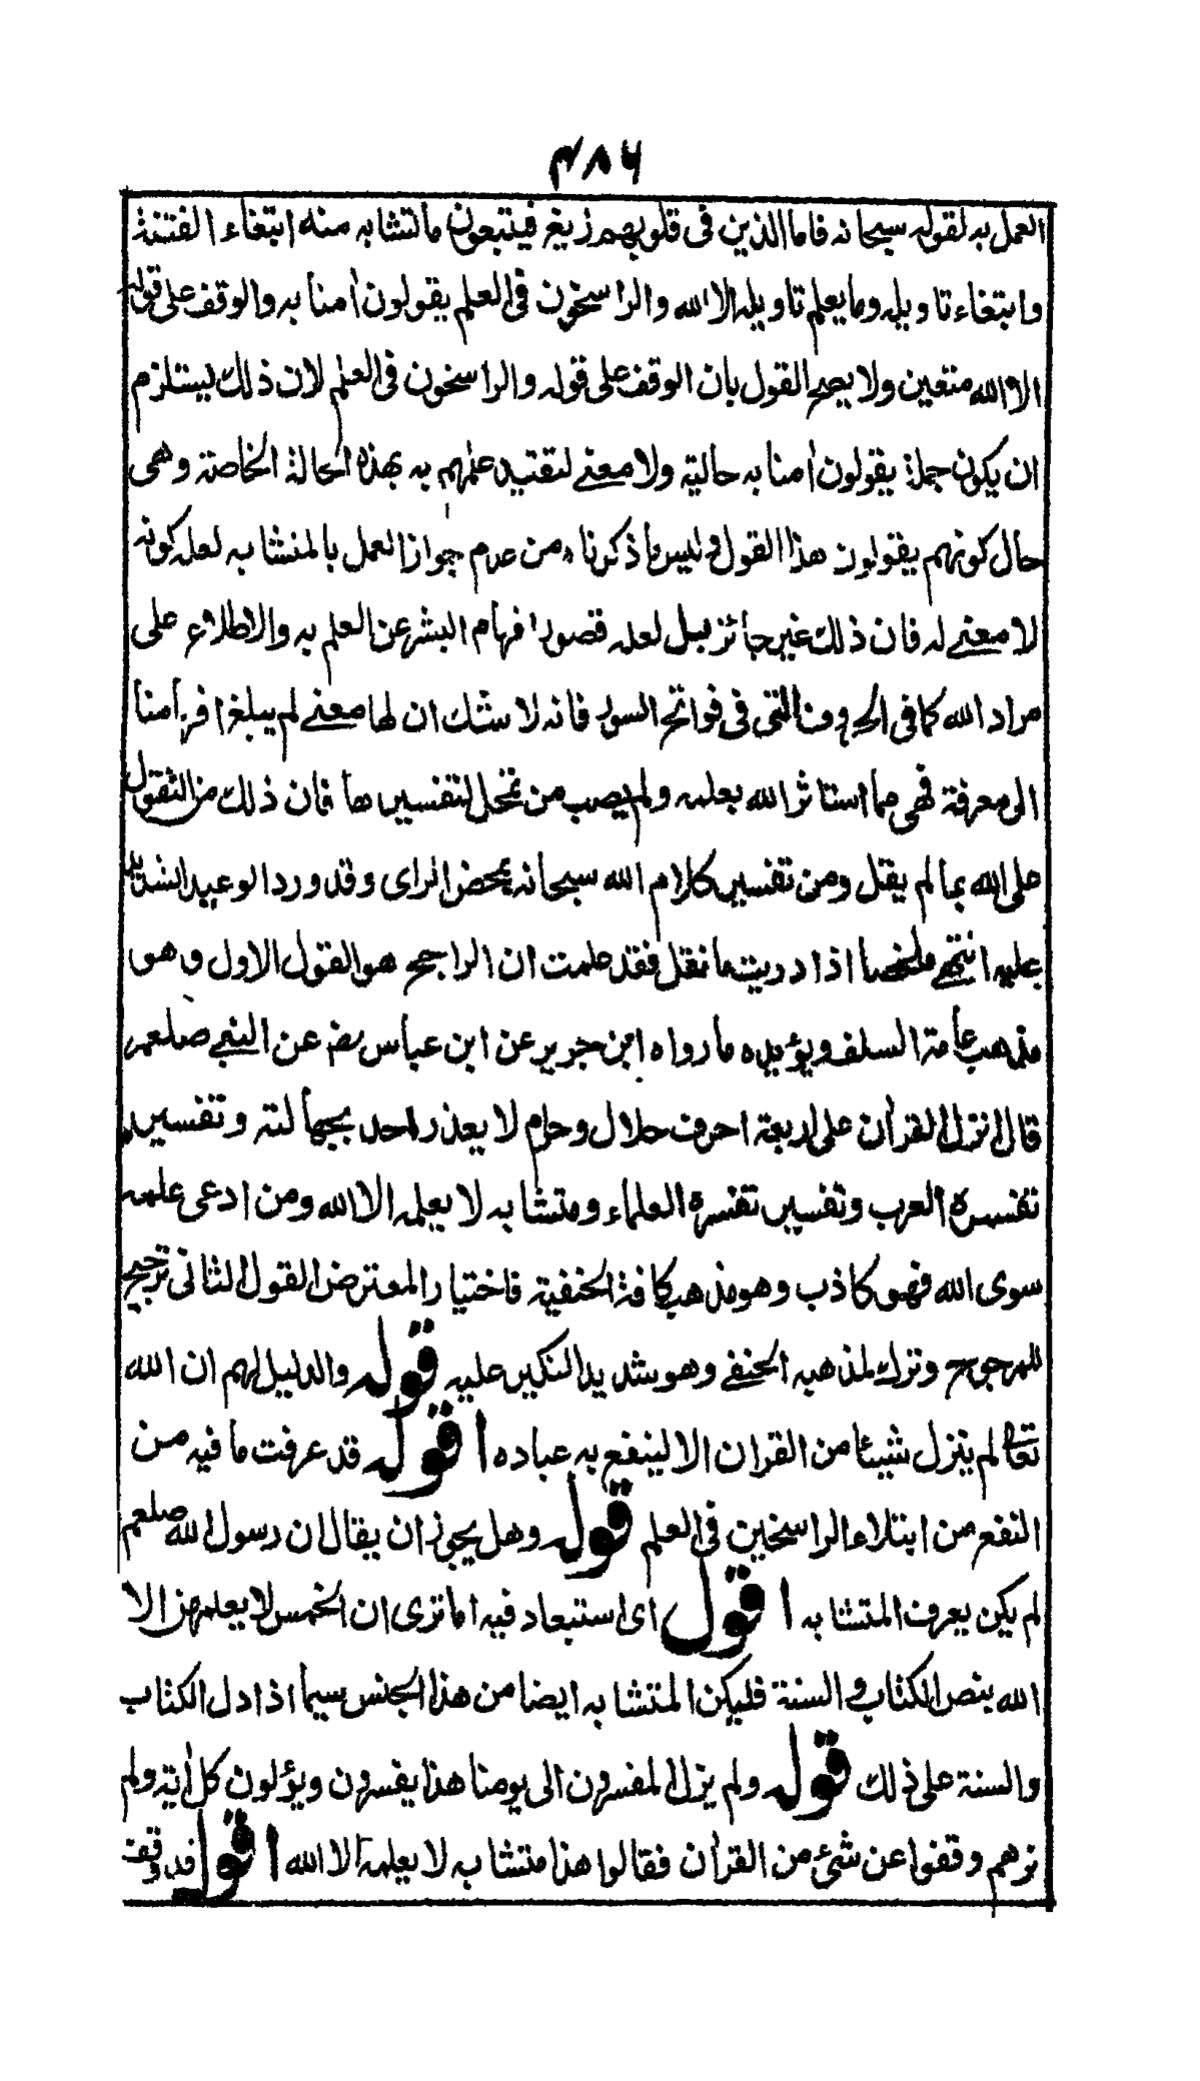 ۴۸۶
العمل به لقوله سبحانه فاما الذين فى قلوبهم زيغ فيتبعون ما تشابه منه ابتغاء الفتنة
وابتغاء تاويله وما يعلم تاويله الا الله والراسخون فى العلم يقولون اٰمنا به والوقف على قوله
الا الله متعين ولا يصح القول بان الوقف على قوله والراسخون فى العلم لان ذلك يستلزم
ان يكون جملة يقولون اٰمنا به حالية ولا معنے لتقييد علمهم به بهذه الحالة الخاصة وهى
حال كونهم يقولون هذا القول وليس ما ذكرنا من عدم جواز العمل بالمتشابه لعله كونه
لا معنے له فان ذلك غير جائز بل لعله قصور افهام البشر عن العلم به والاطلاع على
مراد الله كما فى الحروف التى فى فواتح السور فانه لا شك ان لها معنے لم يبلغ افهامنا
الى معرفة فهى مما استاثر الله بعلمه ولم يصب من تمحل لتفسيرها فان ذلك من التقول
على الله بما لم يقل ومن تفسير كلام الله سبحانه بمحض الراى وقد ورد الوعيد الشديد
عليه انتهے ملخصا اذا دريت ما نقل فقد علمت ان الراجح هو القول الاول وهو
مذهب عامة السلف ويؤيده ما رواه ابن جرير عن ابن عباس رضـ عن النبے صلعم
قال انزل القراٰن على اربعة احرف حلال وحرام لا يعذر احد بجهالته وتفسير
تفسره العرب وتفسير تفسره العلماء ومتشابه لا يعلمه الا الله ومن ادعى علمه
سوى الله فهو كاذب وهو مذهب كافة الحنفية فاختيار المعترض القول الثانى ترجيح
للمرجوح وترك لمذهبه الحنفے وهو شديد النكير عليه قوله والدليل لهم ان الله
تعالٰى لم ينزل شيئا من القران الا لينفع به عباده اقول قد عرفت ما فيه من
النفع من ابتلاء الراسخين فى العلم قوله وهل يجوز ان يقال ان رسول الله صلعم
لم يكن يعرف المتشابه اقول اى استبعاد فيه اما ترى ان الخمس لا يعلمهن الا
الله بنص الكتاب والسنة فليكن المتشابه ايضا من هذا الجنس سيما اذا دل الكتاب
والسنة على ذلك قوله ولم يزل المفسرون الى يومنا هذا يفسرون ويؤلون كل اٰية ولم
نرهم وقفوا عن شئ من القراٰن فقالوا هذا متشابه لا يعلمه الا الله اقول قد وقف